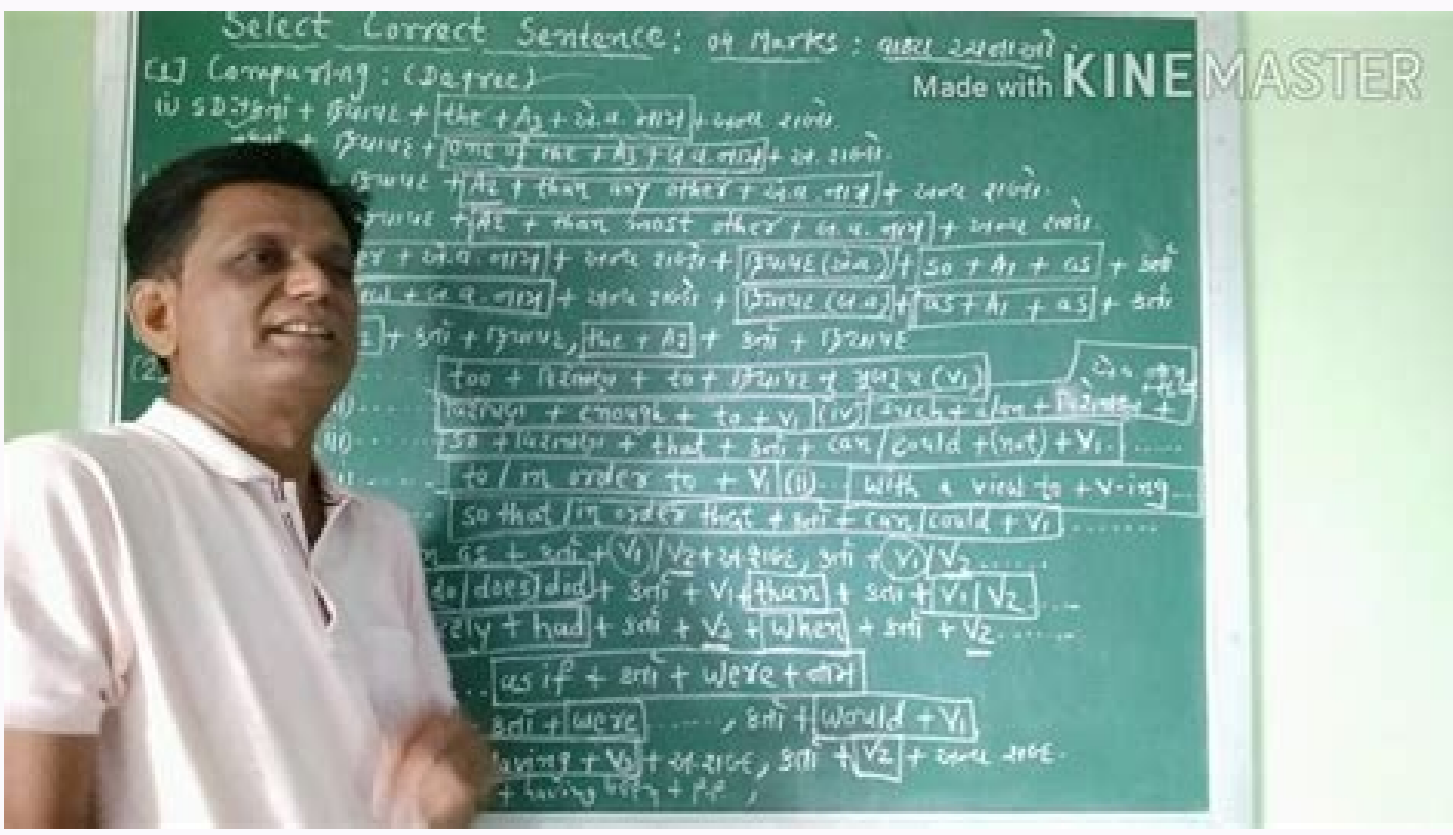 Select Correct Sentence: 04 Marks: વાક્ય રચનાઓ
Made with KINEMASTER
[1] Comparing: (Degree)
(i) SD: કર્તા + ક્રિયાપદ + the + A3 + એ.વ. નામ + અન્ય શબ્દો.
+ ક્રિયાપદ + one of the + A3 + બ.વ. નામ + અ. શબ્દો.
ક્રિયાપદ + A2 + than any other + એ.વ. નામ + અન્ય શબ્દો.
ક્રિયાપદ + A2 + than most other + બ.વ. નામ + અન્ય શબ્દો.
er + એ.વ. નામ + અન્ય શબ્દો + ક્રિયાપદ (એ.વ) + so + A1 + as + કર્તા
+ બ.વ. નામ + અન્ય શબ્દો + ક્રિયાપદ (બ.વ) + as + A1 + as + કર્તા
+ કર્તા + ક્રિયાપદ, the + A2 + કર્તા + ક્રિયાપદ
[2] too + વિશેષણ + to + ક્રિયાપદ નું મુળરૂપ (V1)
વિશેષણ + enough + to + V1 (iv) such + a/an + વિશેષણ +
so + વિશેષણ + that + કર્તા + can/could + (not) + V1. ......
to / in order to + V1 (ii).. with a view to + V-ing...
so that / in order that + કર્તા + can/could + V1 .......
as + કર્તા + V1/V2 + અ. શબ્દ, કર્તા + V1/V2 ......
do/does/did + કર્તા + V1 + than + કર્તા + V1/V2 ....
ely + had + કર્તા + V3 + when + કર્તા + V2 ......
.. as if + કર્તા + were + નામ
કર્તા + were ......, કર્તા + would + V1 ......
aving + V3 + અ. શબ્દ, કર્તા + V2 + અન્ય શબ્દ.
+ having been + P.P,